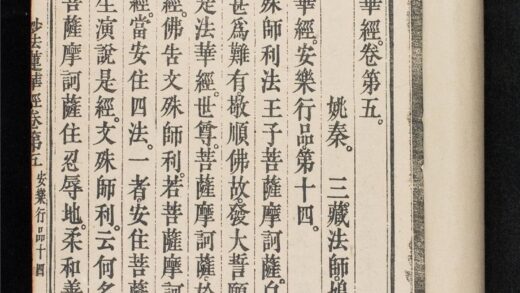 華經。卷第五。
姚秦。三藏法師。鳩
華經。安樂行品第十四。
殊師利法王子菩薩摩訶薩。白
甚為難有敬順佛故。發大誓願
是法華經。世尊。菩薩摩訶薩。於
經。佛告文殊師利。若菩薩摩訶
經。當安住四法。一者。安住菩薩
生演說是經。文殊師利。云何名
菩薩摩訶薩住忍辱地。柔和善
妙法蓮華經卷第五 安樂行品十四